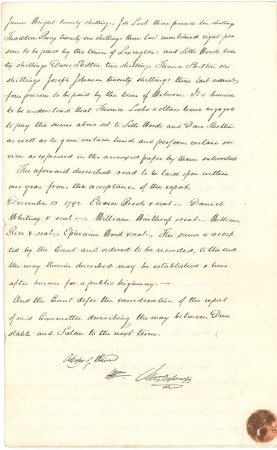 James Wright twenty shillings, Job Lock three pounds ten shilling
Thaddeus Fisk twenty one shillings these last mentioned eight per
sons to be paid by the town of Lexington; and Seth Woods ten
ty shillings Dave Skelton two shillings Thomas Skelton six
shillings Joseph Johnson twenty shillings, these last named
four persons to be paid by the town of Woburn. It is however
to be understood that Thomas Locke & others have engaged
to pay the sums above set to Seth Woods and Dave Skelton
as well as to give certain lands and perform certain ser
vices as expressed in the annexed paper by them subscribed
The aforesaid described road to be laid open within
one year from the acceptance of this report.
December 13, 1792. Eleazer Brooks & seal — Daniel
Whitney & seal — William Winthrop & seal — William
Rice & seal, Ephraim Wood & seal — The same is accep
ted by the Court and ordered to be recorded, to the end
the way therein described may be established & here
after known for a public highway. —
And the Court defer the consideration of the report
of said Committee describing the way between Dun
stable and to the next term.
A Copy of Record